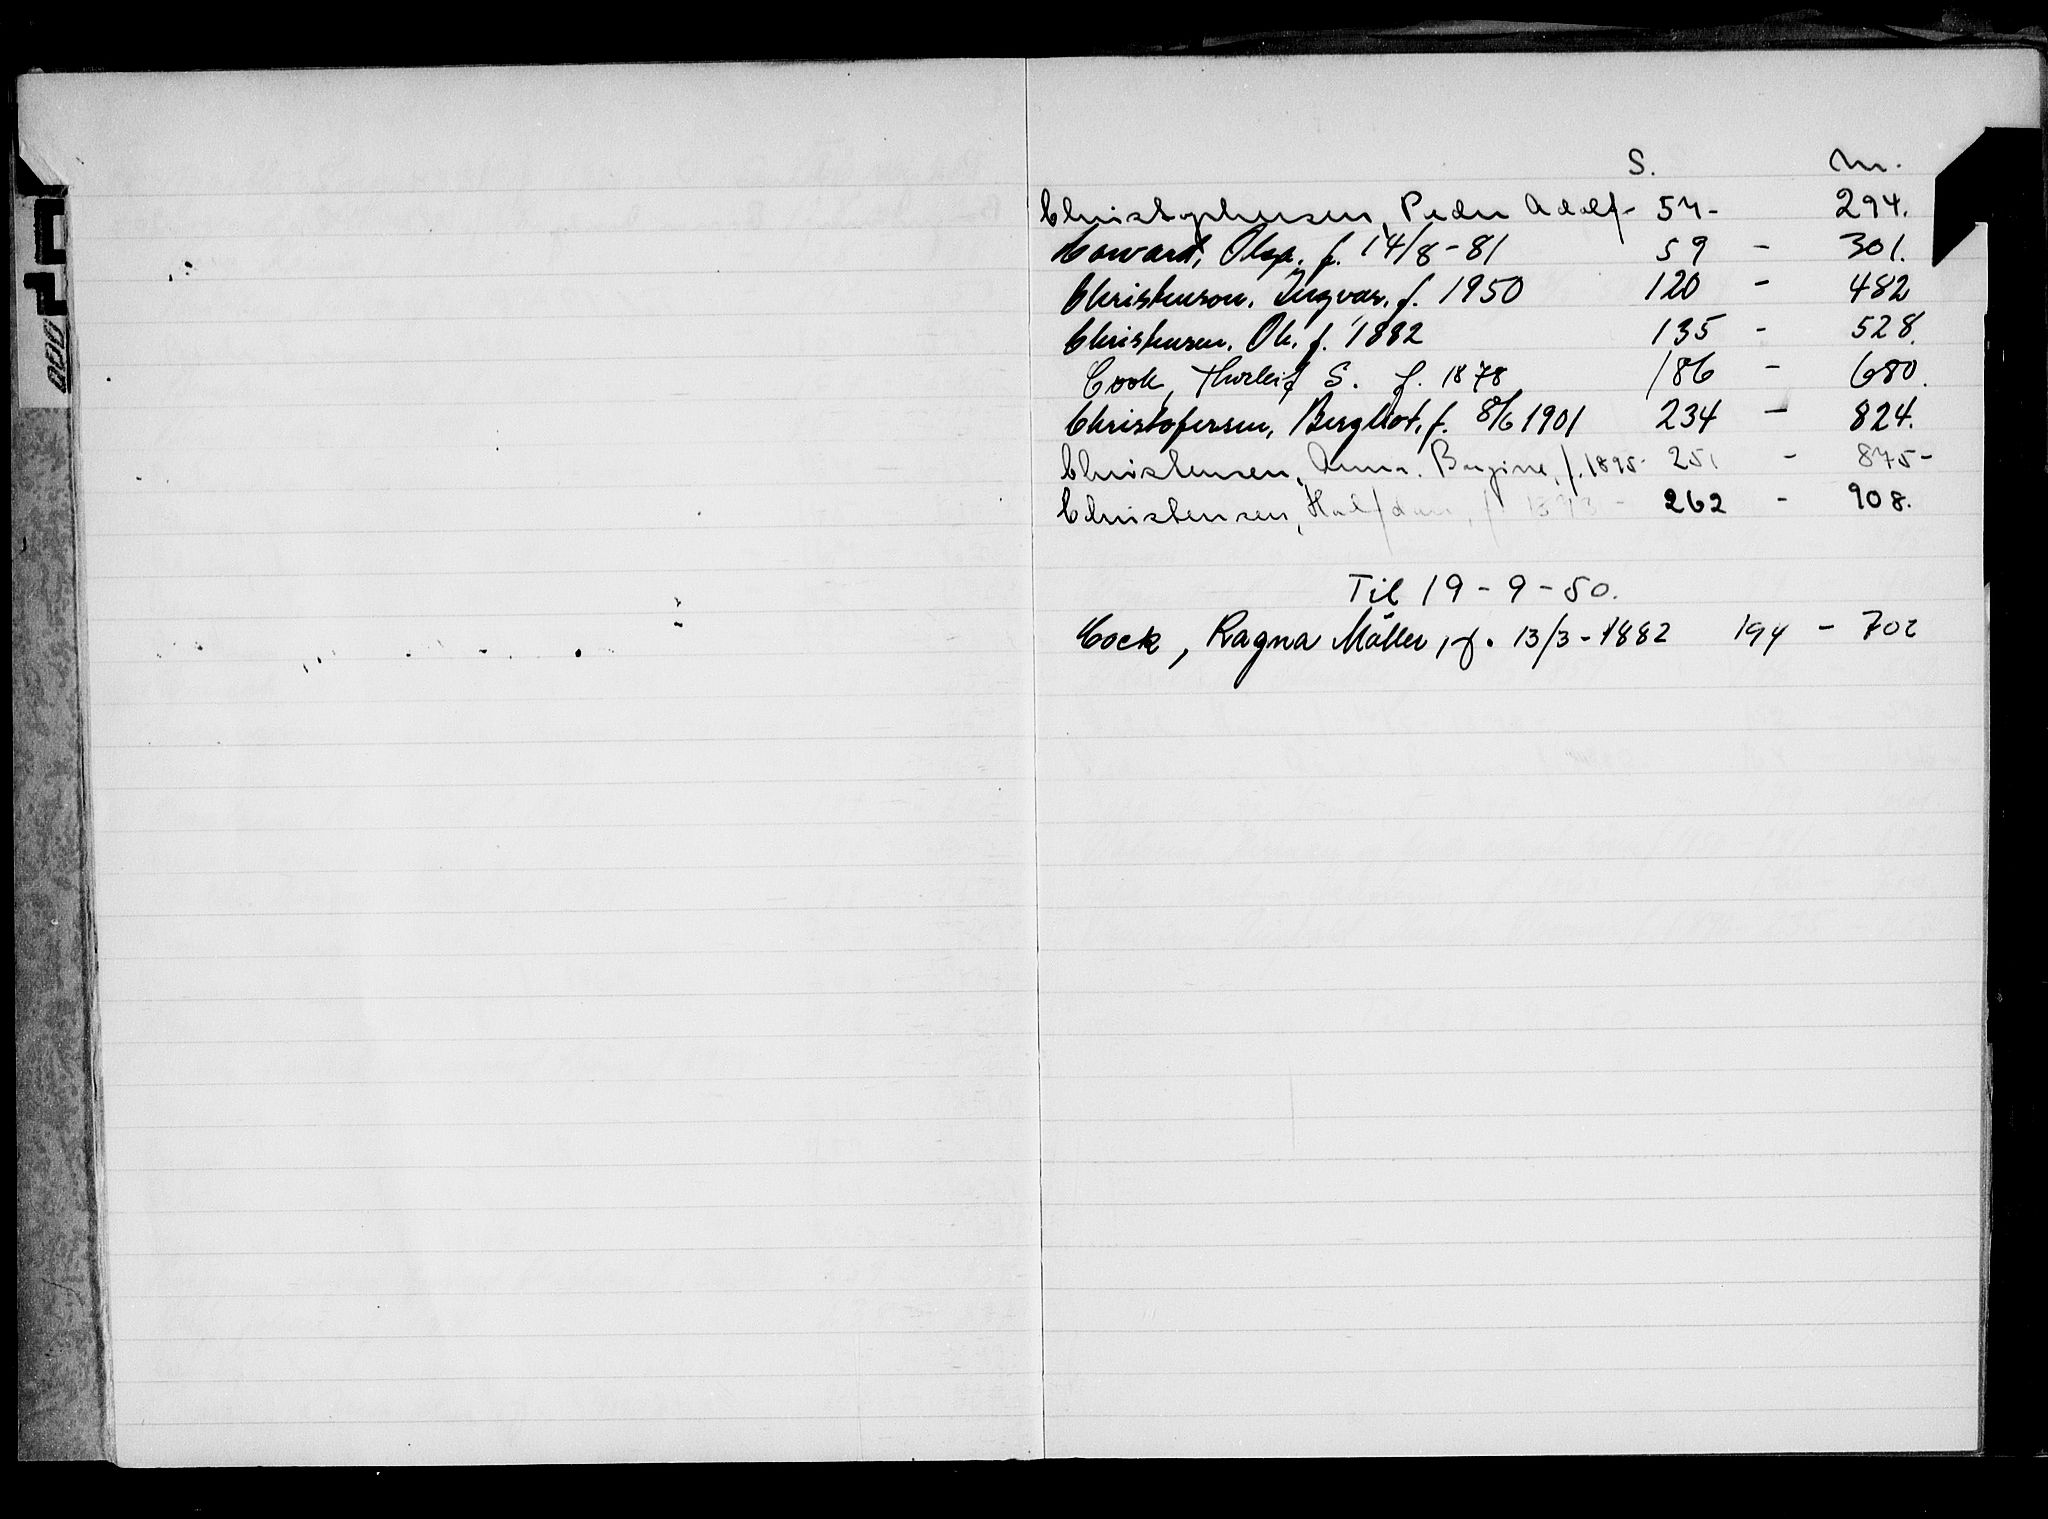 S. Nr.
Christophersen, Peder Adolf - 57 - 294.
Coward, Olga. f. 14/8-81 59 - 301.
Christenson, Ingvar, f. 1950 120 - 482
Christensen, Ole. f. 1882 135 - 528.
Cook, Thorleif S. f. 1878 186 - 680.
Christofersen, Bergliot, f. 8/6 1901 234 - 824.
Christensen, Anna Bergine, f. 1895 - 251 - 875 -
Christensen, Halfdan, f 262 - 908.
Til 19 - 9 - 50.
Cock, Ragna Møller, f. 13/3 - 1882 194 - 702